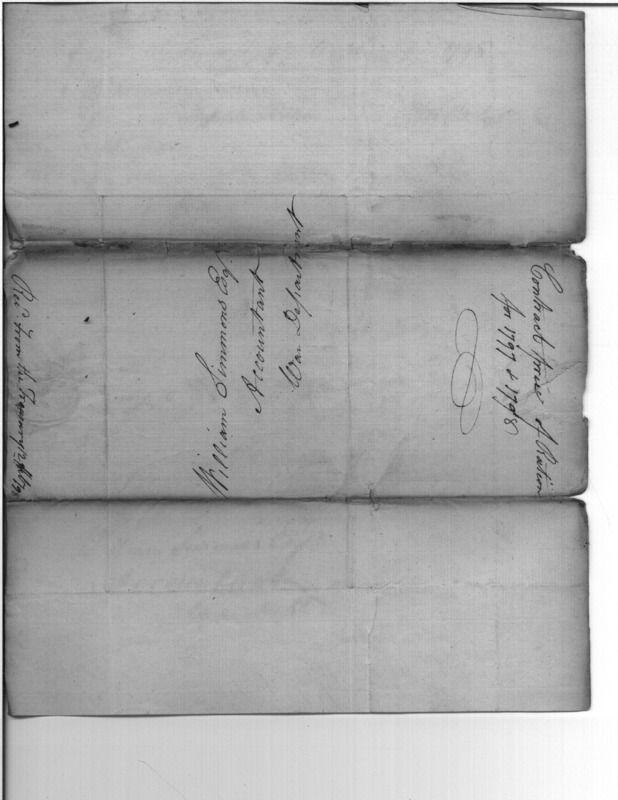 Contract price of Rations
for 1797 & 1798
William Simmons Esqr.
Accountant
War Department
Recd. from the Treasury